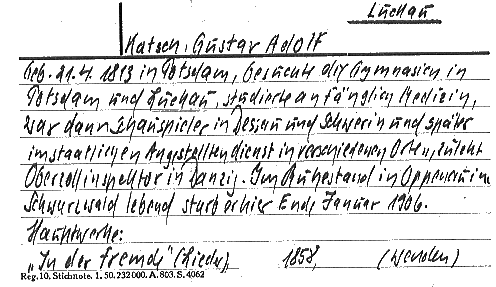 Luckau
Katsch, Gustav Adolf
Geb. 21.4.1813 in Potsdam, besuchte die Gymnasien in
Potsdam und Luckau, studierte anfänglich Medizin,
war dann Schauspieler in Dessau und Schwerin und später
im staatlichen Angestelltendienst in verschiedenen Orten, zuletzt
Oberzollinspektor in Danzig. Im Ruhestand in Oppenau im
Schwarzwald lebend starb er hier Ende Januar 1906.
Hauptwerke:
„In der Fremde" (Lieder), 1858, (wenden)
Reg. 10. Stichnote. 1. 50. 232000. A. 803. S. 4062